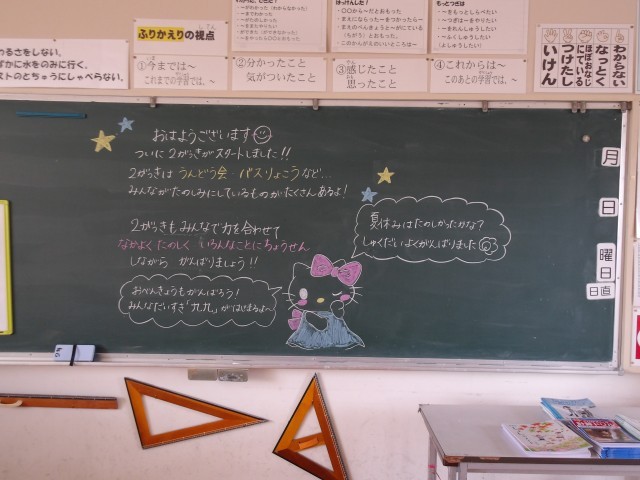 ふりかえりの視点
①今までは～
これまでの学習では、
②分かったこと
気がついたこと
③感じたこと
思ったこと
④これからは～
このあとの学習では、
わからない
なっとく
ほぼおなじ
にている
つけたし
いけん
うるさをしない。
ずかに水をのみに行く。
ストのとちゅうにしゃべらない。
おはようございます
ついに2がっきがスタートしました!!
2がっきは うんどう会・バスりょこう など…
みんながたのしみにしているものがたくさんあるよ!
2がっきもみんなで力を合わせて
なかよく たのしく いろんなことにちょうせん
しながら がんばりましょう!!
夏休みはたのしかったかな?
しゅくだいよくがんばりました
おべんきょうもがんばろう!
みんなだいすき「九九」がはじまるよ~
月
日
曜日
日直